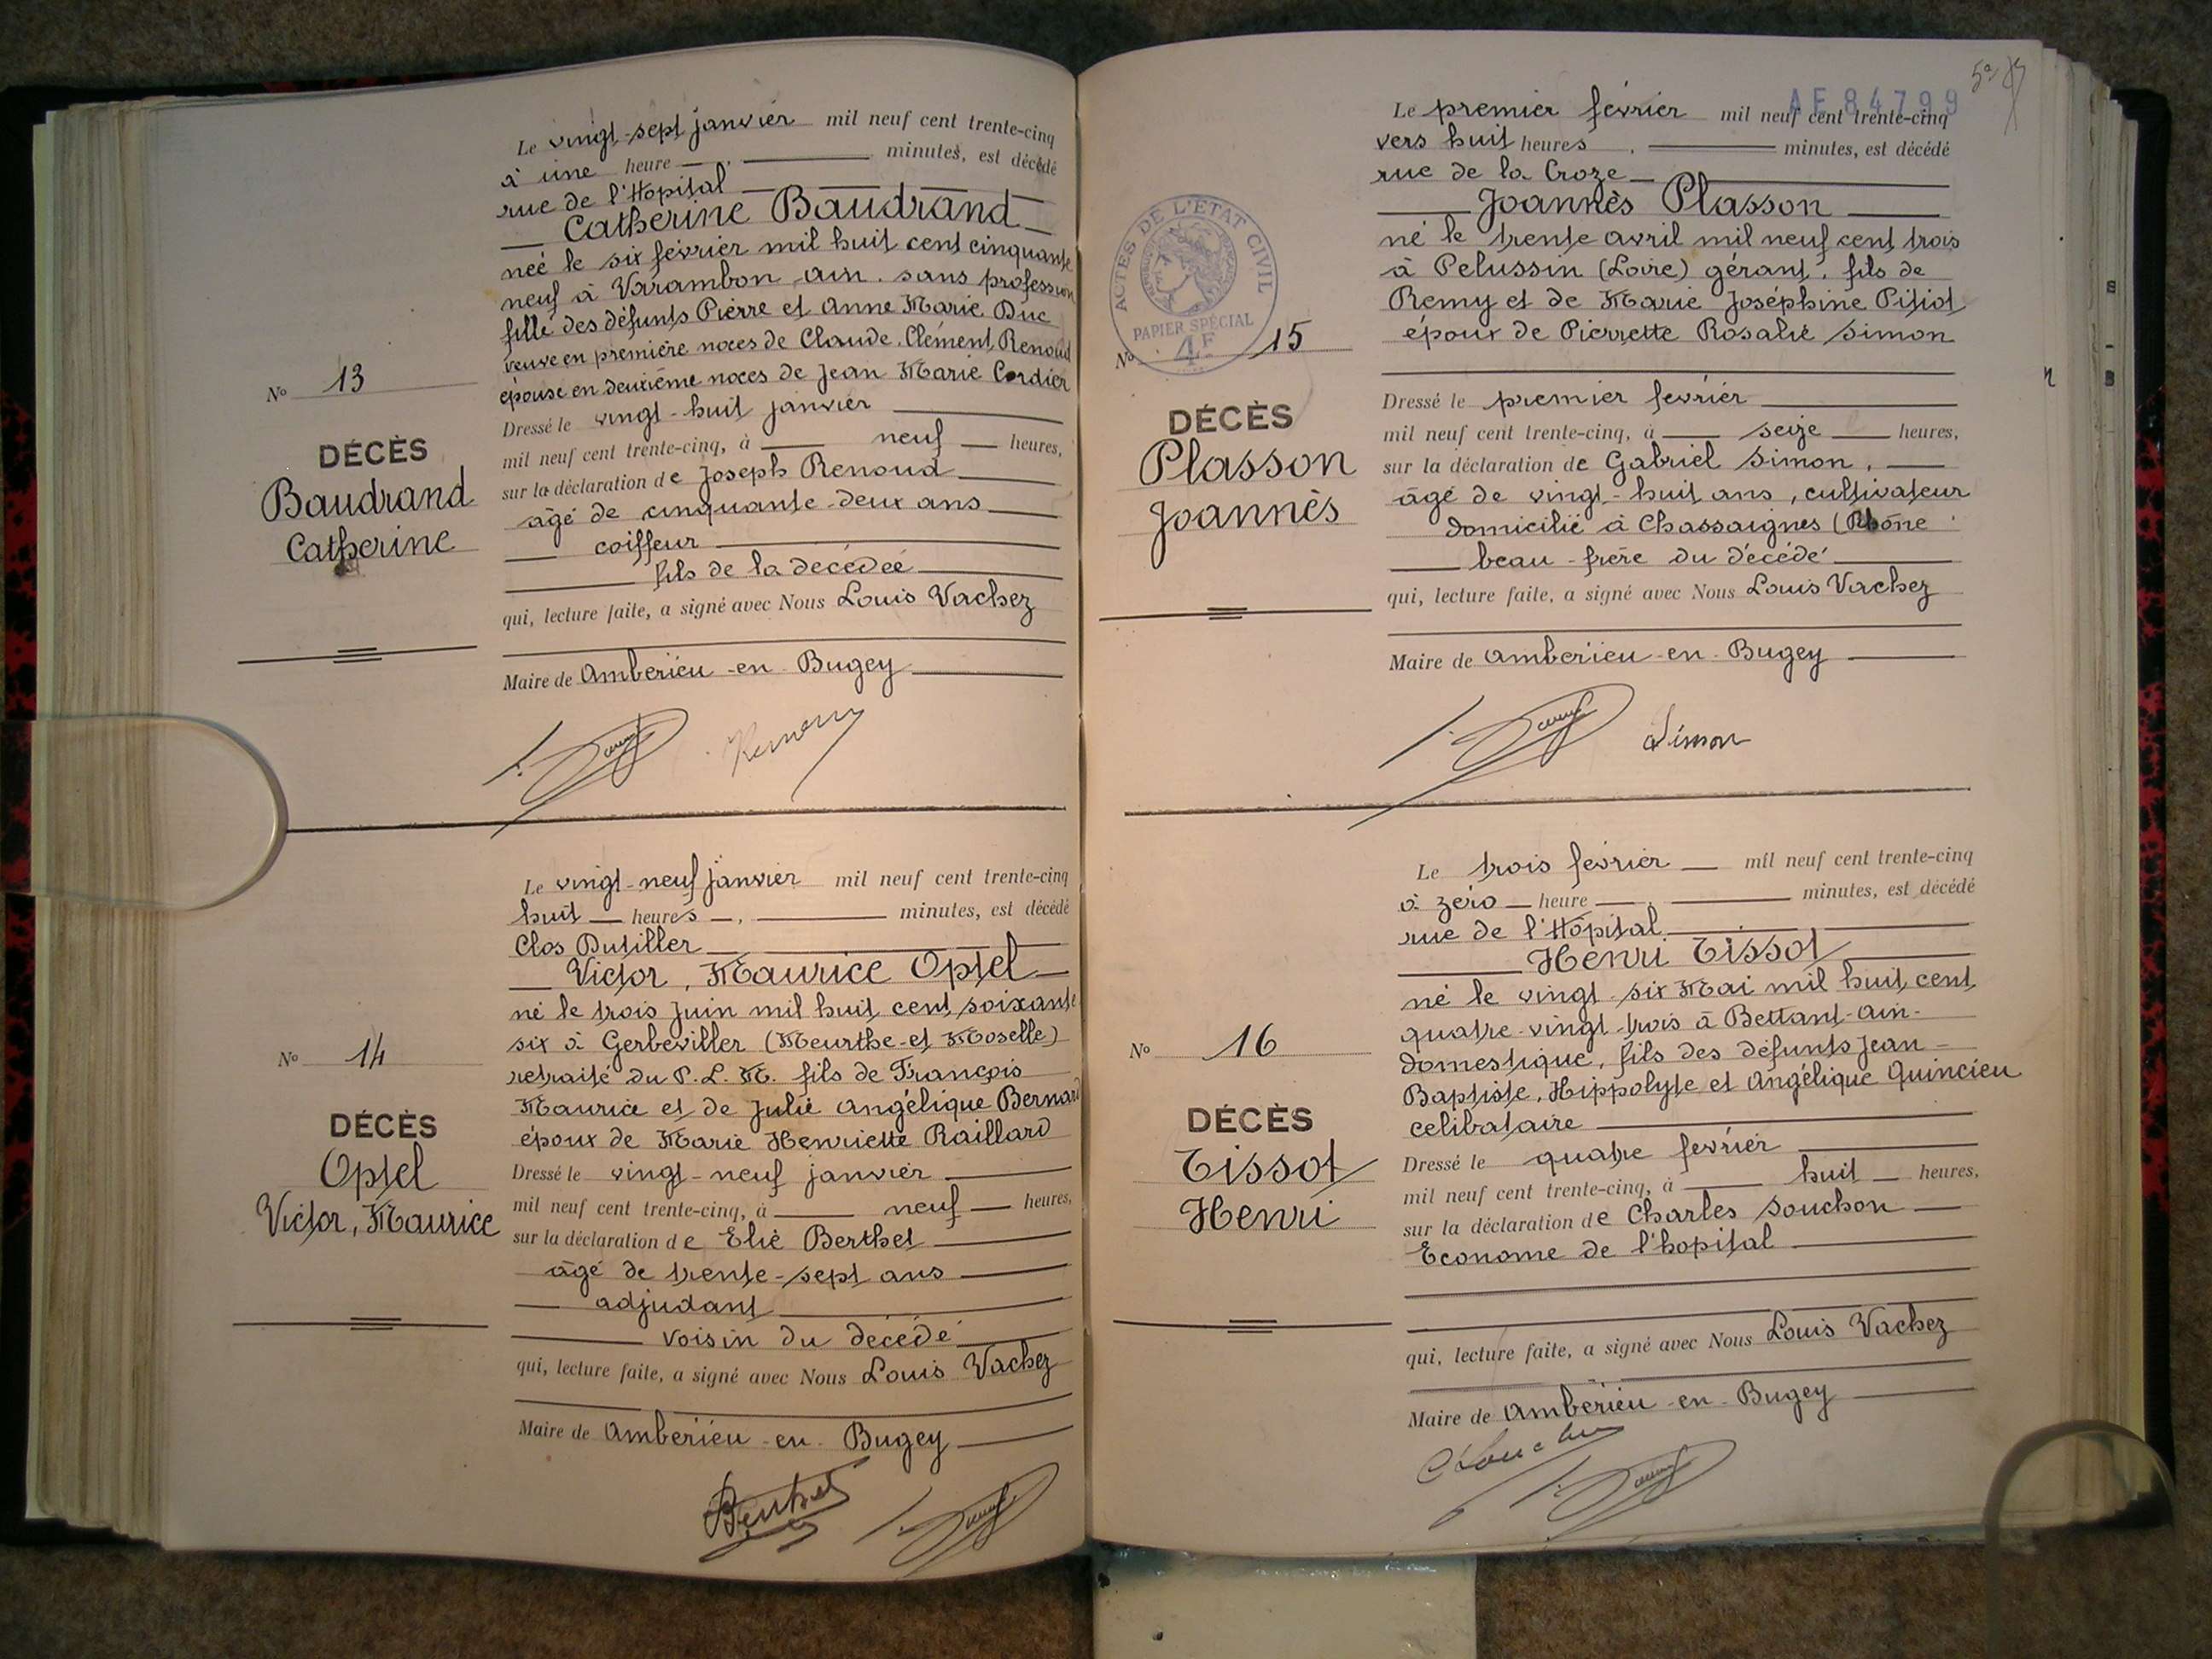 Le vingt-sept janvier mil neuf cent trente-cinq
à une heure minutes, est décédé
rue de l'Hopital
Catherine Baudrand
née le six février mil huit cent cinquante
neuf à Varambon - ain. sans profession
fille des défunts Pierre et Anne Marie Duc
veuve en première noces de Claude, Clément, Renoud
épouse en deuxième noces de Jean Marie Cordier
Dressé le vingt-huit janvier
mil neuf cent trente-cinq, à neuf heures,
sur la déclaration de Joseph Renoud
âgé de cinquante-deux ans
coiffeur
fils de la décédée
qui, lecture faite, a signé avec Nous Louis Vachez
Maire de Amberieu-en-Bugey
No 13
DÉCÈS
Baudrand
Catherine
Le vingt-neuf janvier mil neuf cent trente-cinq
huit heures minutes, est décédé
Clos Dutiller
Victor, Maurice Optel
né le trois Juin mil huit cent soixante
six à Gerbeviller (Meurthe-et Moselle)
retraité du P.L.M. fils de François
Maurice et de Julie Angélique Bernard
époux de Marie Henriette Raillard
Dressé le vingt-neuf janvier
mil neuf cent trente-cinq, à neuf heures,
sur la déclaration de Elie Berthet
âgé de trente-sept ans
adjudant
voisin du décédé
qui, lecture faite, a signé avec Nous Louis Vachez
Maire de Amberieu-en-Bugey
Berthet
No 14
DÉCÈS
Optel
Victor, Maurice
AE84799
Le premier février mil neuf cent trente-cinq
vers huit heures minutes, est décédé
rue de la Croze
Joannès Plasson
né le trente avril mil neuf cent trois
à Pelussin (Loire) gérant, fils de
Remy et de Marie Joséphine Pitiot
époux de Pierrette Rosalie Simon
Dressé le premier février
mil neuf cent trente-cinq, à seize heures,
sur la déclaration de Gabriel Simon,
âgé de vingt-huit ans, cultivateur
domicilié à Chassaignes (Rhône
beau-frère du décédé
qui, lecture faite, a signé avec Nous Louis Vachez
Maire de Amberieu-en-Bugey
Simon
ACTES DE L'ÉTAT CIVIL
PAPIER SPÉCIAL
4F
No 15
DÉCÈS
Plasson
Joannès
Le trois février mil neuf cent trente-cinq
à zéro heure minutes, est décédé
rue de l'Hôpital
Henri Tissot
né le vingt-six Mai mil huit cent
quatre-vingt-trois à Bettant-ain-
domestique, fils des défunts Jean-
Baptiste, Hippolyte et Angélique Quincieu
celibataire
Dressé le quatre février
mil neuf cent trente-cinq, à huit heures,
sur la déclaration de Charles Souchon
Econome de l'hopital
qui, lecture faite, a signé avec Nous Louis Vachez
Maire de Amberieu-en-Bugey
No 16
DÉCÈS
Tissot
Henri